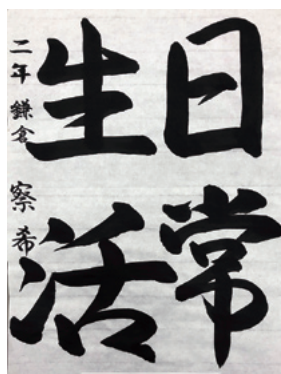 日常
生活
二年 鎌倉 察希